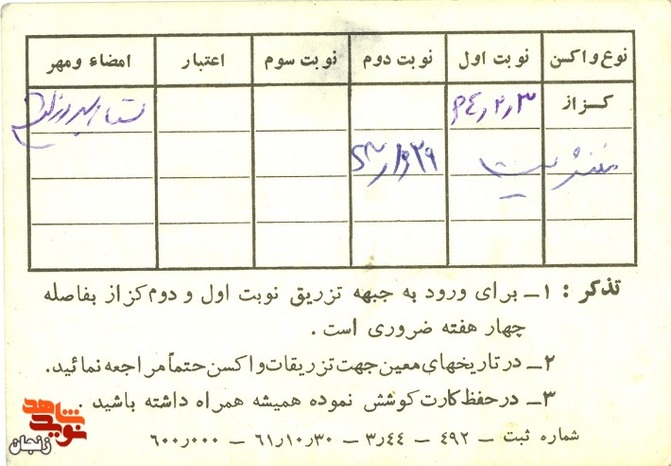 نوع واکسن نوبت اول نوبت دوم نوبت سوم اعتبار امضاء ومهر
کزاز ۶٤٫۲٫۳
مننژیت
تذکر : ۱ـ برای ورود به جبهه تزریق نوبت اول و دوم کزاز بفاصله
چهار هفته ضروری است .
۲ـ در تاریخهای معین جهت تزریقات واکسن حتماً مراجعه نمائید.
۳ـ در حفظ کارت کوشش نموده همیشه همراه داشته باشید .
شماره ثبت ـ ۴۹۲ ـ ۳٫۴۴ ـ ۶۱٫۱۰٫۳۰ ـ ۶۰۰٫۰۰۰
نوید شاهد
زنجان